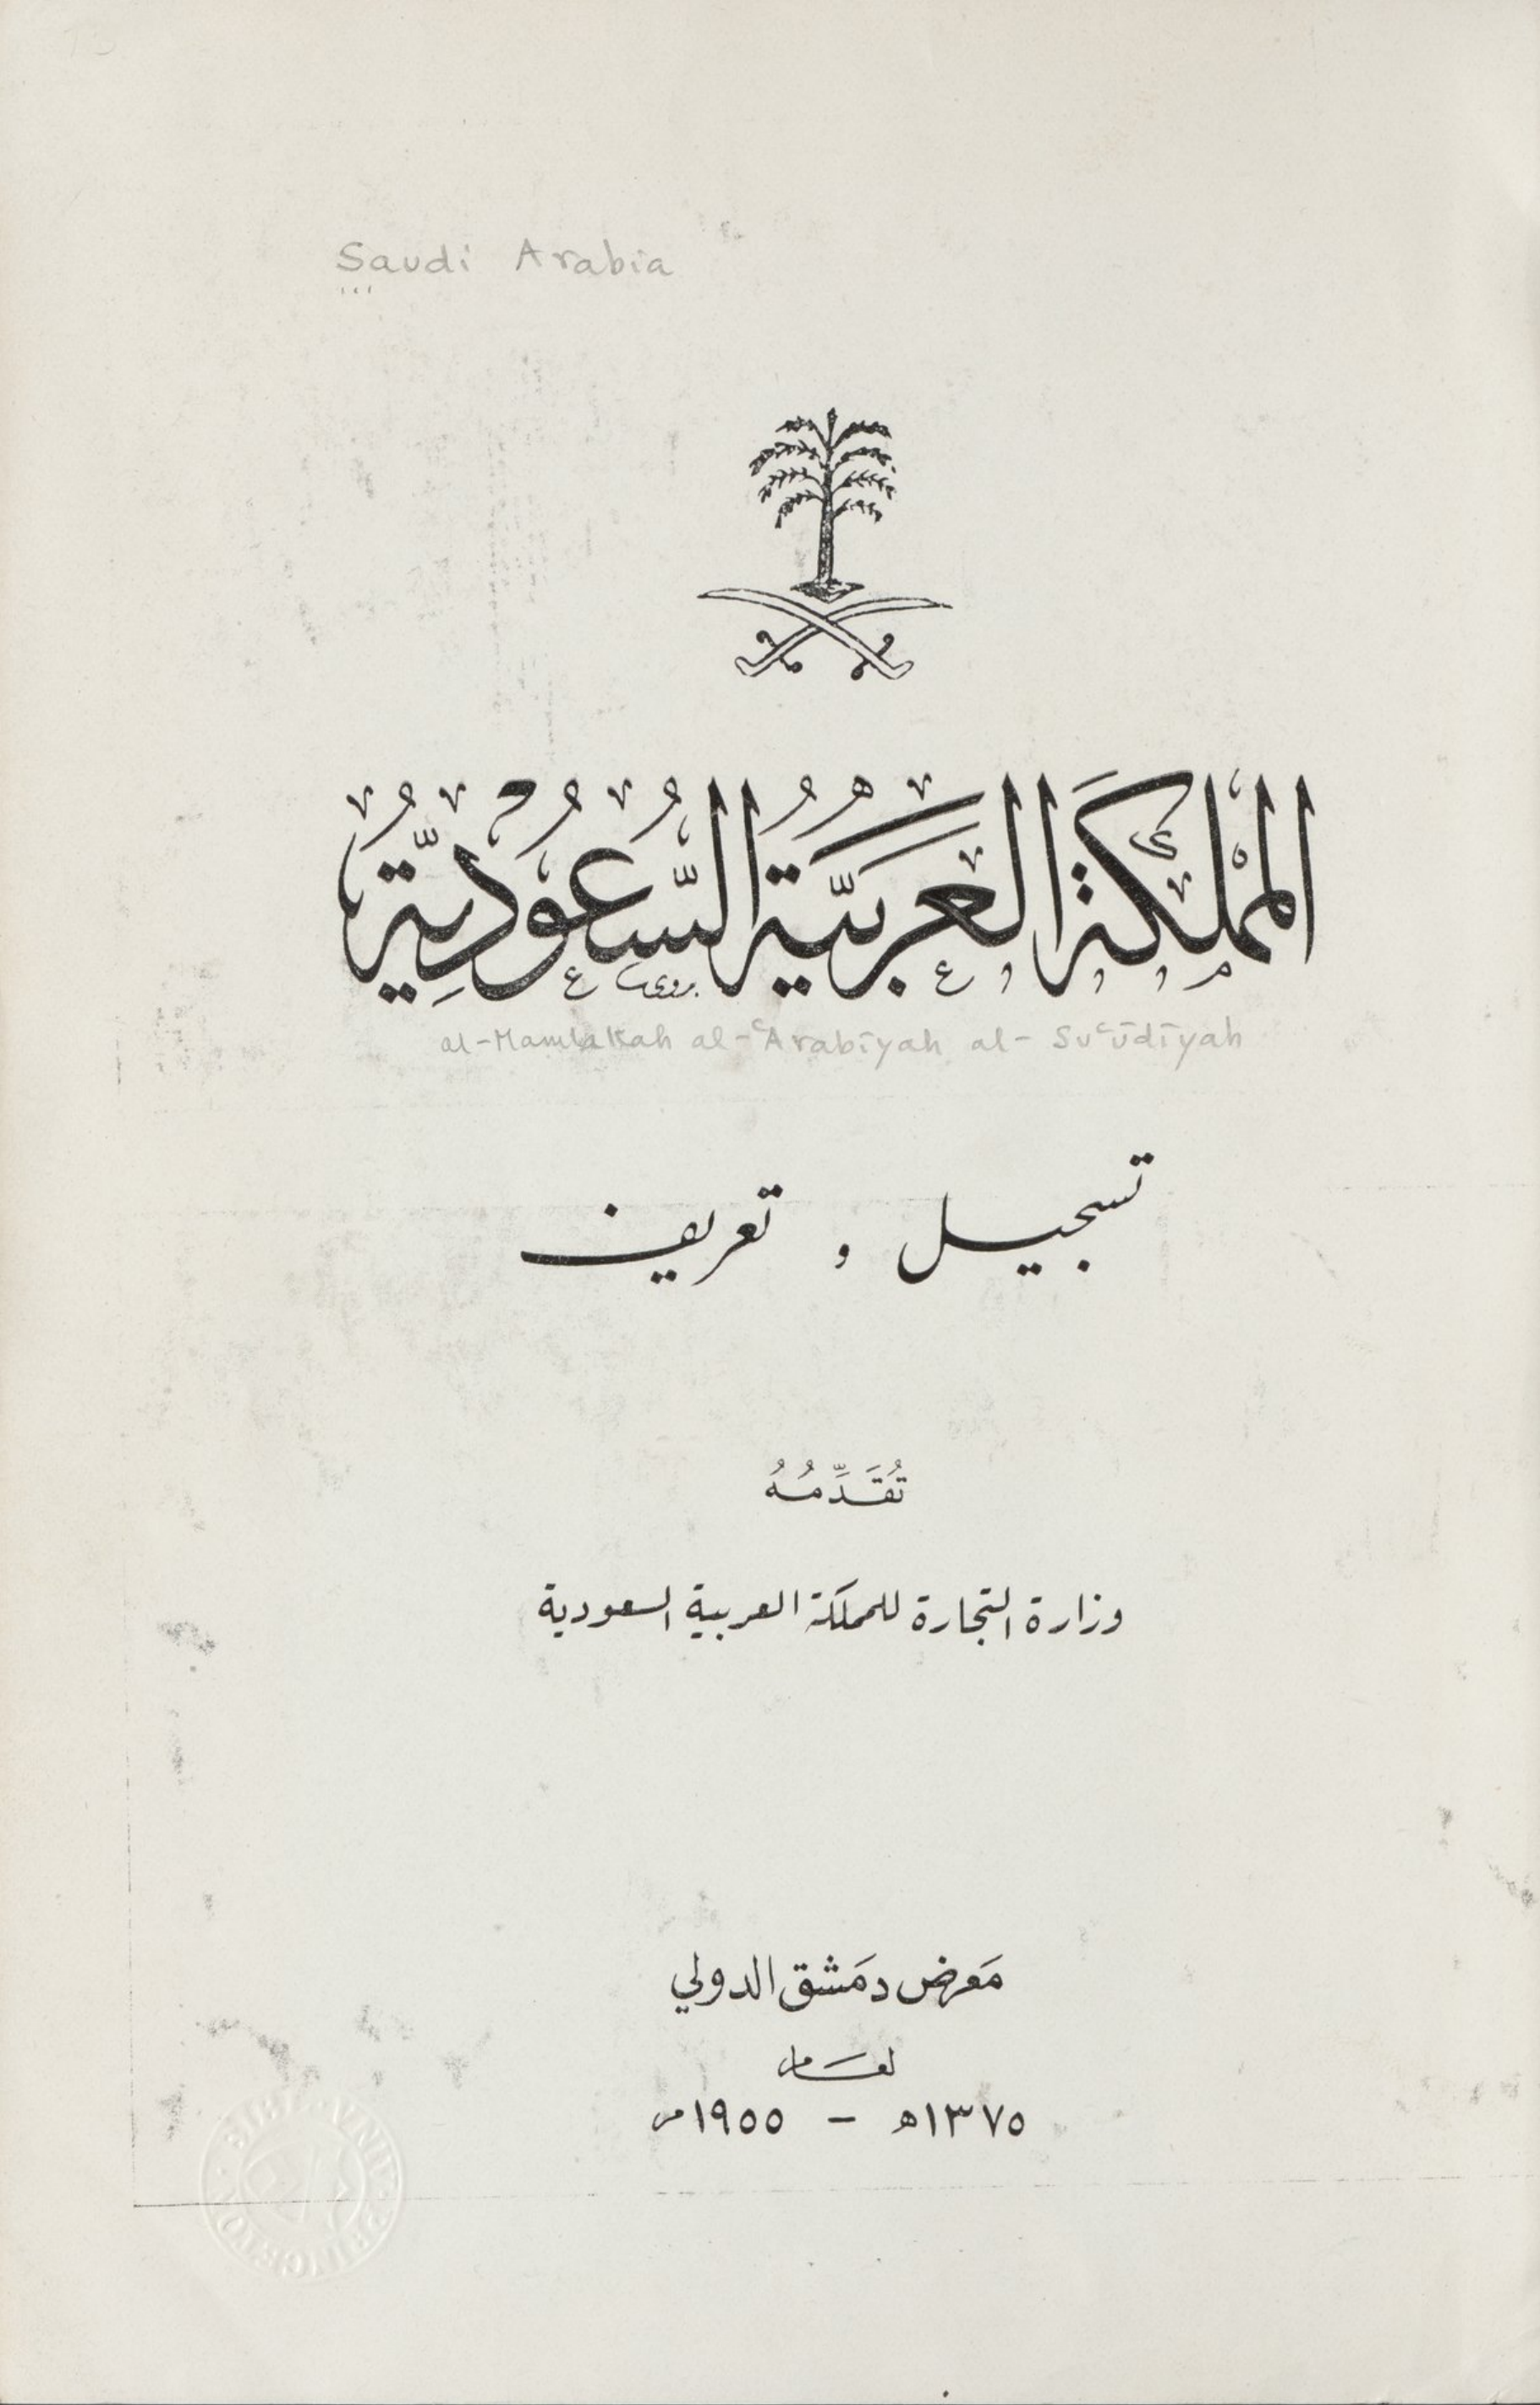 Saudi Arabia
المملكة العربية السعودية
al-Mamlakah al-ʿArabīyah al-Suʿūdīyah
تسجيل و تعريف
تُقَدِّمُهُ
وزارة التجارة للمملكة العربية السعودية
مَعرض دمَشق الدولي
لعَام
١٣٧٥ه - ١٩٥٥م